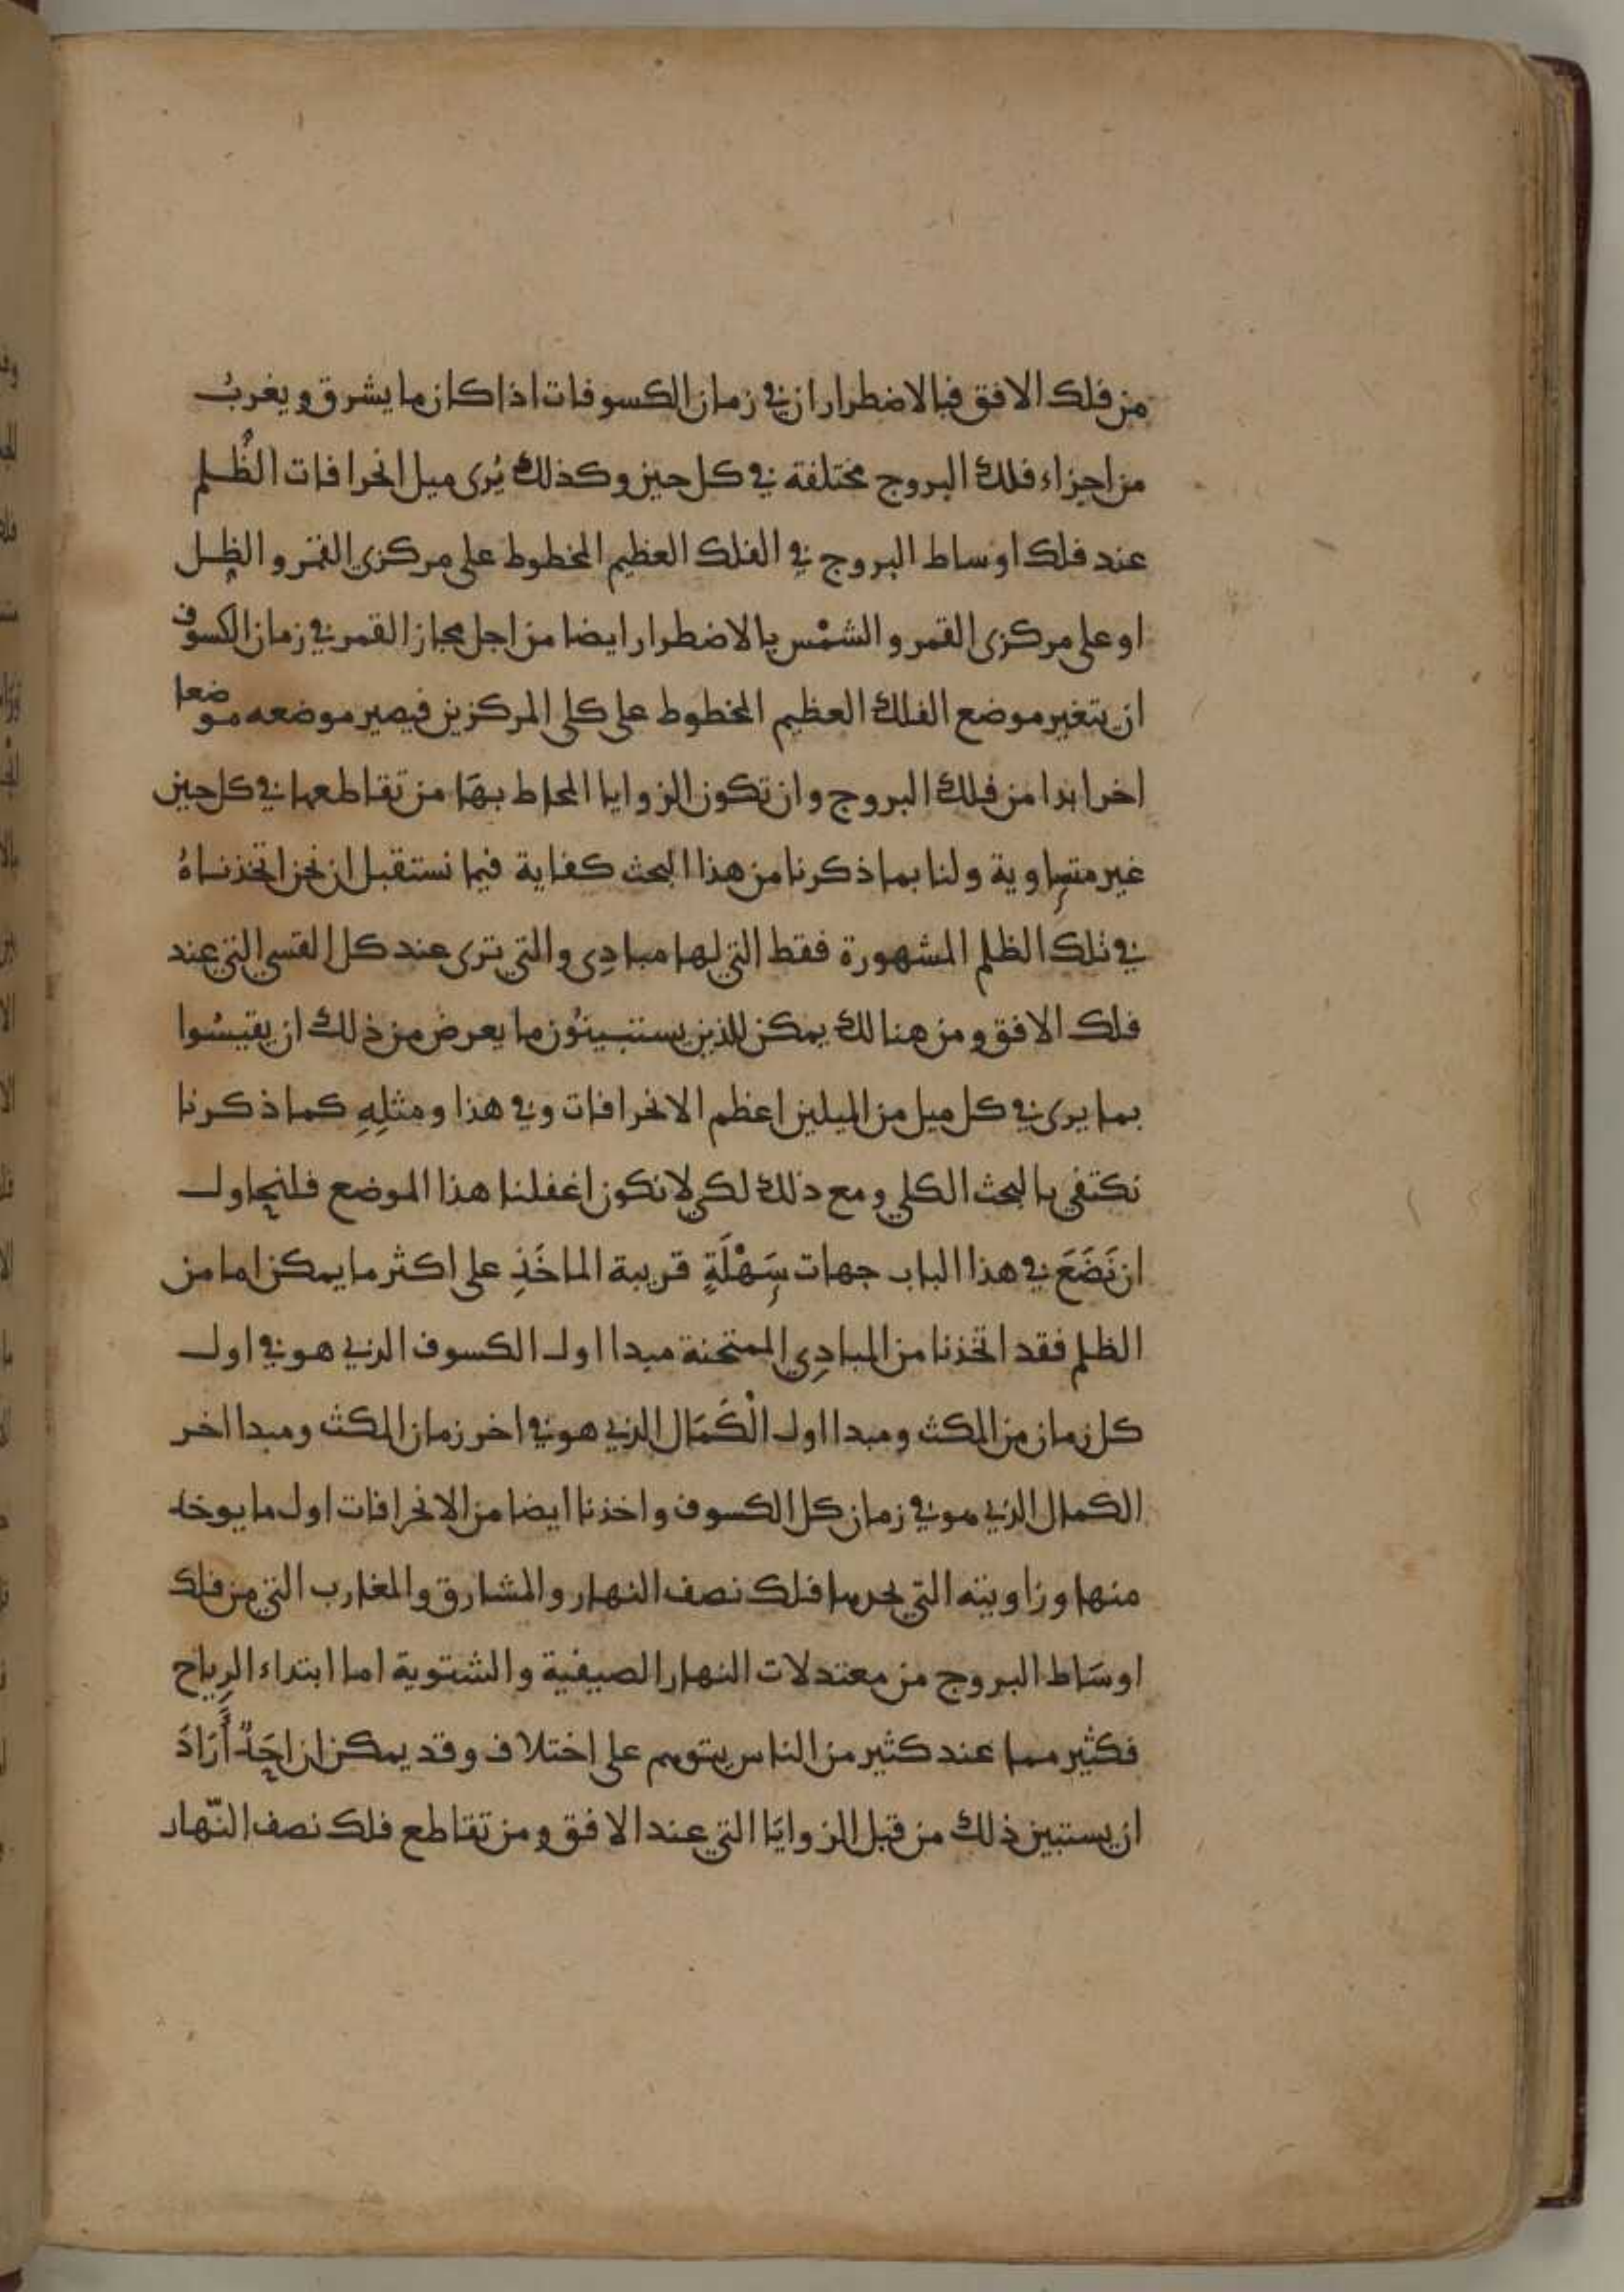 من فلك الافق فبالاضطرار ان في زمان الكسوفات اذا كان ما يشرق ويغربُ
من اجزاء فلك البروج مختلفة في كل حين وكذلك يُرى ميل انحرافات الظُلم
عند فلك اوساط البروج في الفلك العظيم المخطوط على مركزى القمر والظل
او على مركزى القمر والشمْس بالاضطرار ايضا من اجل مجاز القمر في زمان الكسوف
ان يتغير موضع الفلك العظيم المخطوط على كلى المركزين فيصير موضعه موضعا
اخر ابدا من فلك البروج وان تكون الزوايا المحاط بهَا من تقاطعها في كل حين
غير متساوية ولنا بما ذكرنا من هذا البحث كفاية فيما نستقبل ان نحن اتخذناهُ
في تلك الظلم المشهورة فقط التي لها مبادِى والتي ترى عند كل القسي التي عند
فلك الافق ومن هنالك يمكن للذين يستبينُون ما يعرض من ذلك ان يقيسُوا
بما يرى في كل ميل من الميلين اعظم الانحرافات وفي هذا ومثلِهِ كما ذكرنا
نكتفي بالبحث الكلي ومع ذلك لكي لا نكون اغفلنا هذا الموضع فلنحاول
ان نَضَعَ في هذا الباب جهات سَهْلَةٍ قريبة الماخَذِ على اكثر ما يمكن اما من
الظلم فقد اتخذنا من المبادِي الممتحنة مبدا اول الكسوف الذي هو في اول
كل زمان من المكث ومبدا اول الْكَمَال الذي هو في اخر زمان المكث ومبدا اخر
الكمال الذي هو في زمان كل الكسوف واخذنا ايضا من الانحرافات اول ما يوخذ
منها وزاويته التي يحدها فلك نصف النهار والمشارق والمغارب التي من فلك
اوسَاط البروج من معتدلات النهار الصيفية والشتوية اما ابتداء الرِياح
فكثير مما عند كثير من الناس يتوهم على اختلاف وقد يمكن ان احَدٌ أَرَادَ
ان يستبين ذلك من قبل الزوايَا التي عند الافق ومن تقاطع فلك نصف النّهار